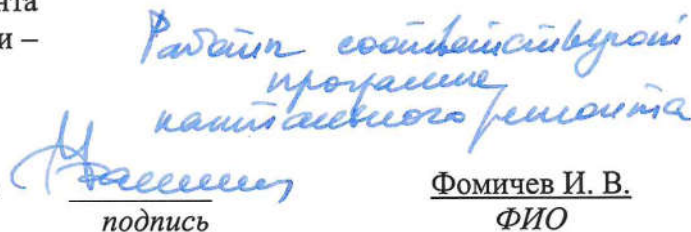 нта
и –
Работы соответствуют
программе
капитального ремонта
Фомичев И. В.
подпись
ФИО